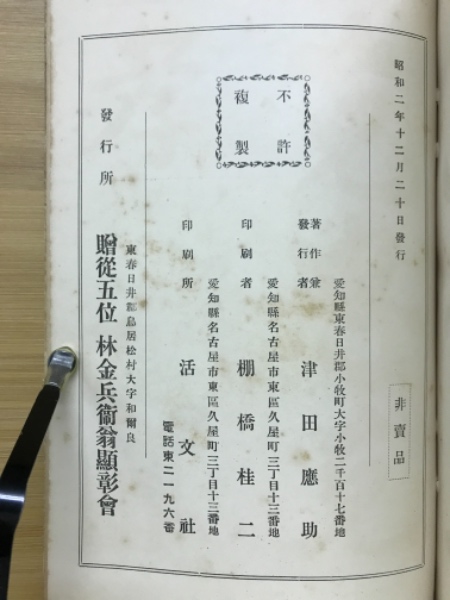 昭和二年十二月二十日發行
非賣品
不許
複製
著作兼
發行者
愛知縣東春日井郡小牧町大字小牧二千百十七番地
津田應助
印刷者
愛知縣名古屋市東區久屋町三丁目十三番地
棚橋桂二
印刷所
愛知縣名古屋市東區久屋町三丁目十三番地
活文社
電話東二一九六番
發行所
東春日井郡鳥居松村大字和爾良
贈從五位 林金兵衞翁顯彰會